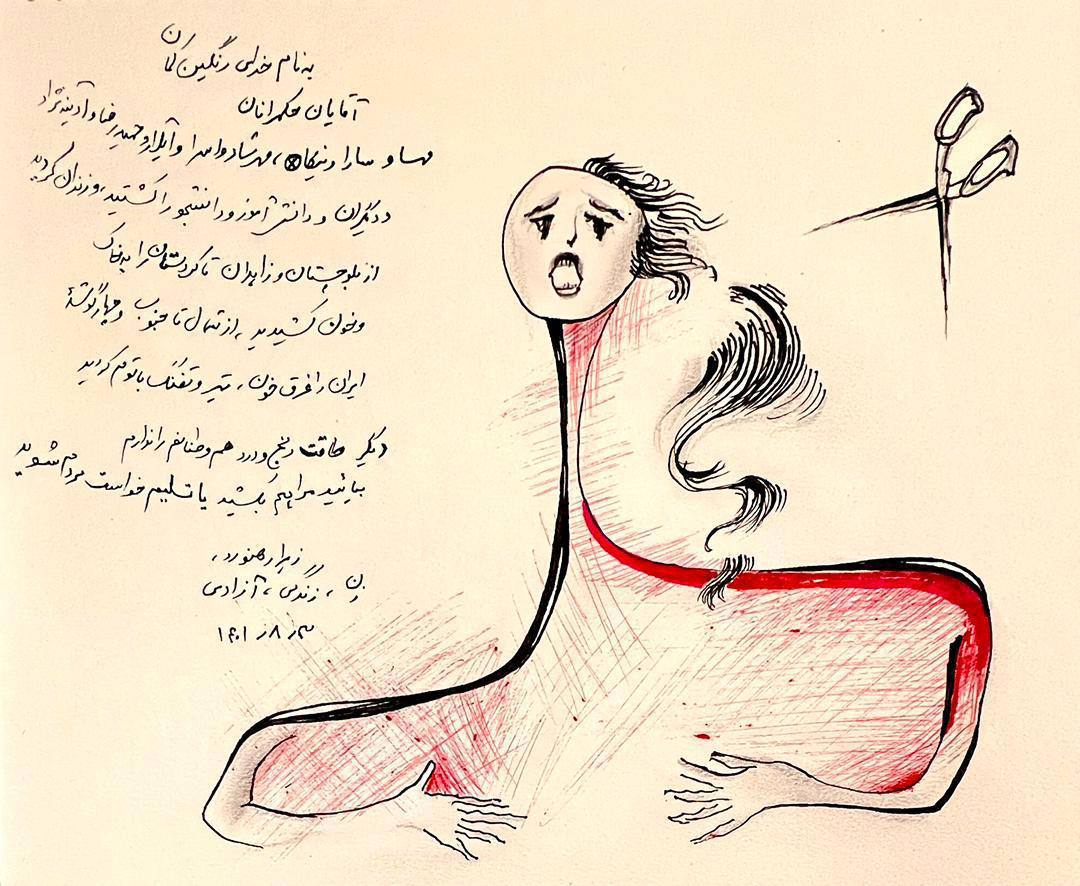 به نام خدای رنگین کمان
آقایان حکمرانان
مهسا و سارا و نیکا، مهرشاد و اسرا و آیلار و حمیدرضا و آدینه‌زاد
و دیگران و دانش آموز و دانشجو را کشتید، و زندان کردید
از بلوچستان و زاهدان تا کردستان را به خاک
و خون کشیدید، از شمال تا جنوب و چهارگوشهٔ
ایران را غرق خون، تیر و تفنگ باتوم کردید
دیگر طاقت رنج و درد هم وطنانم را ندارم
بیائید مرا هم بکشید یا تسلیم خواست مردم شوید
زهرا رهنورد،
زن، زندگی، آزادی
۱۴۰۱